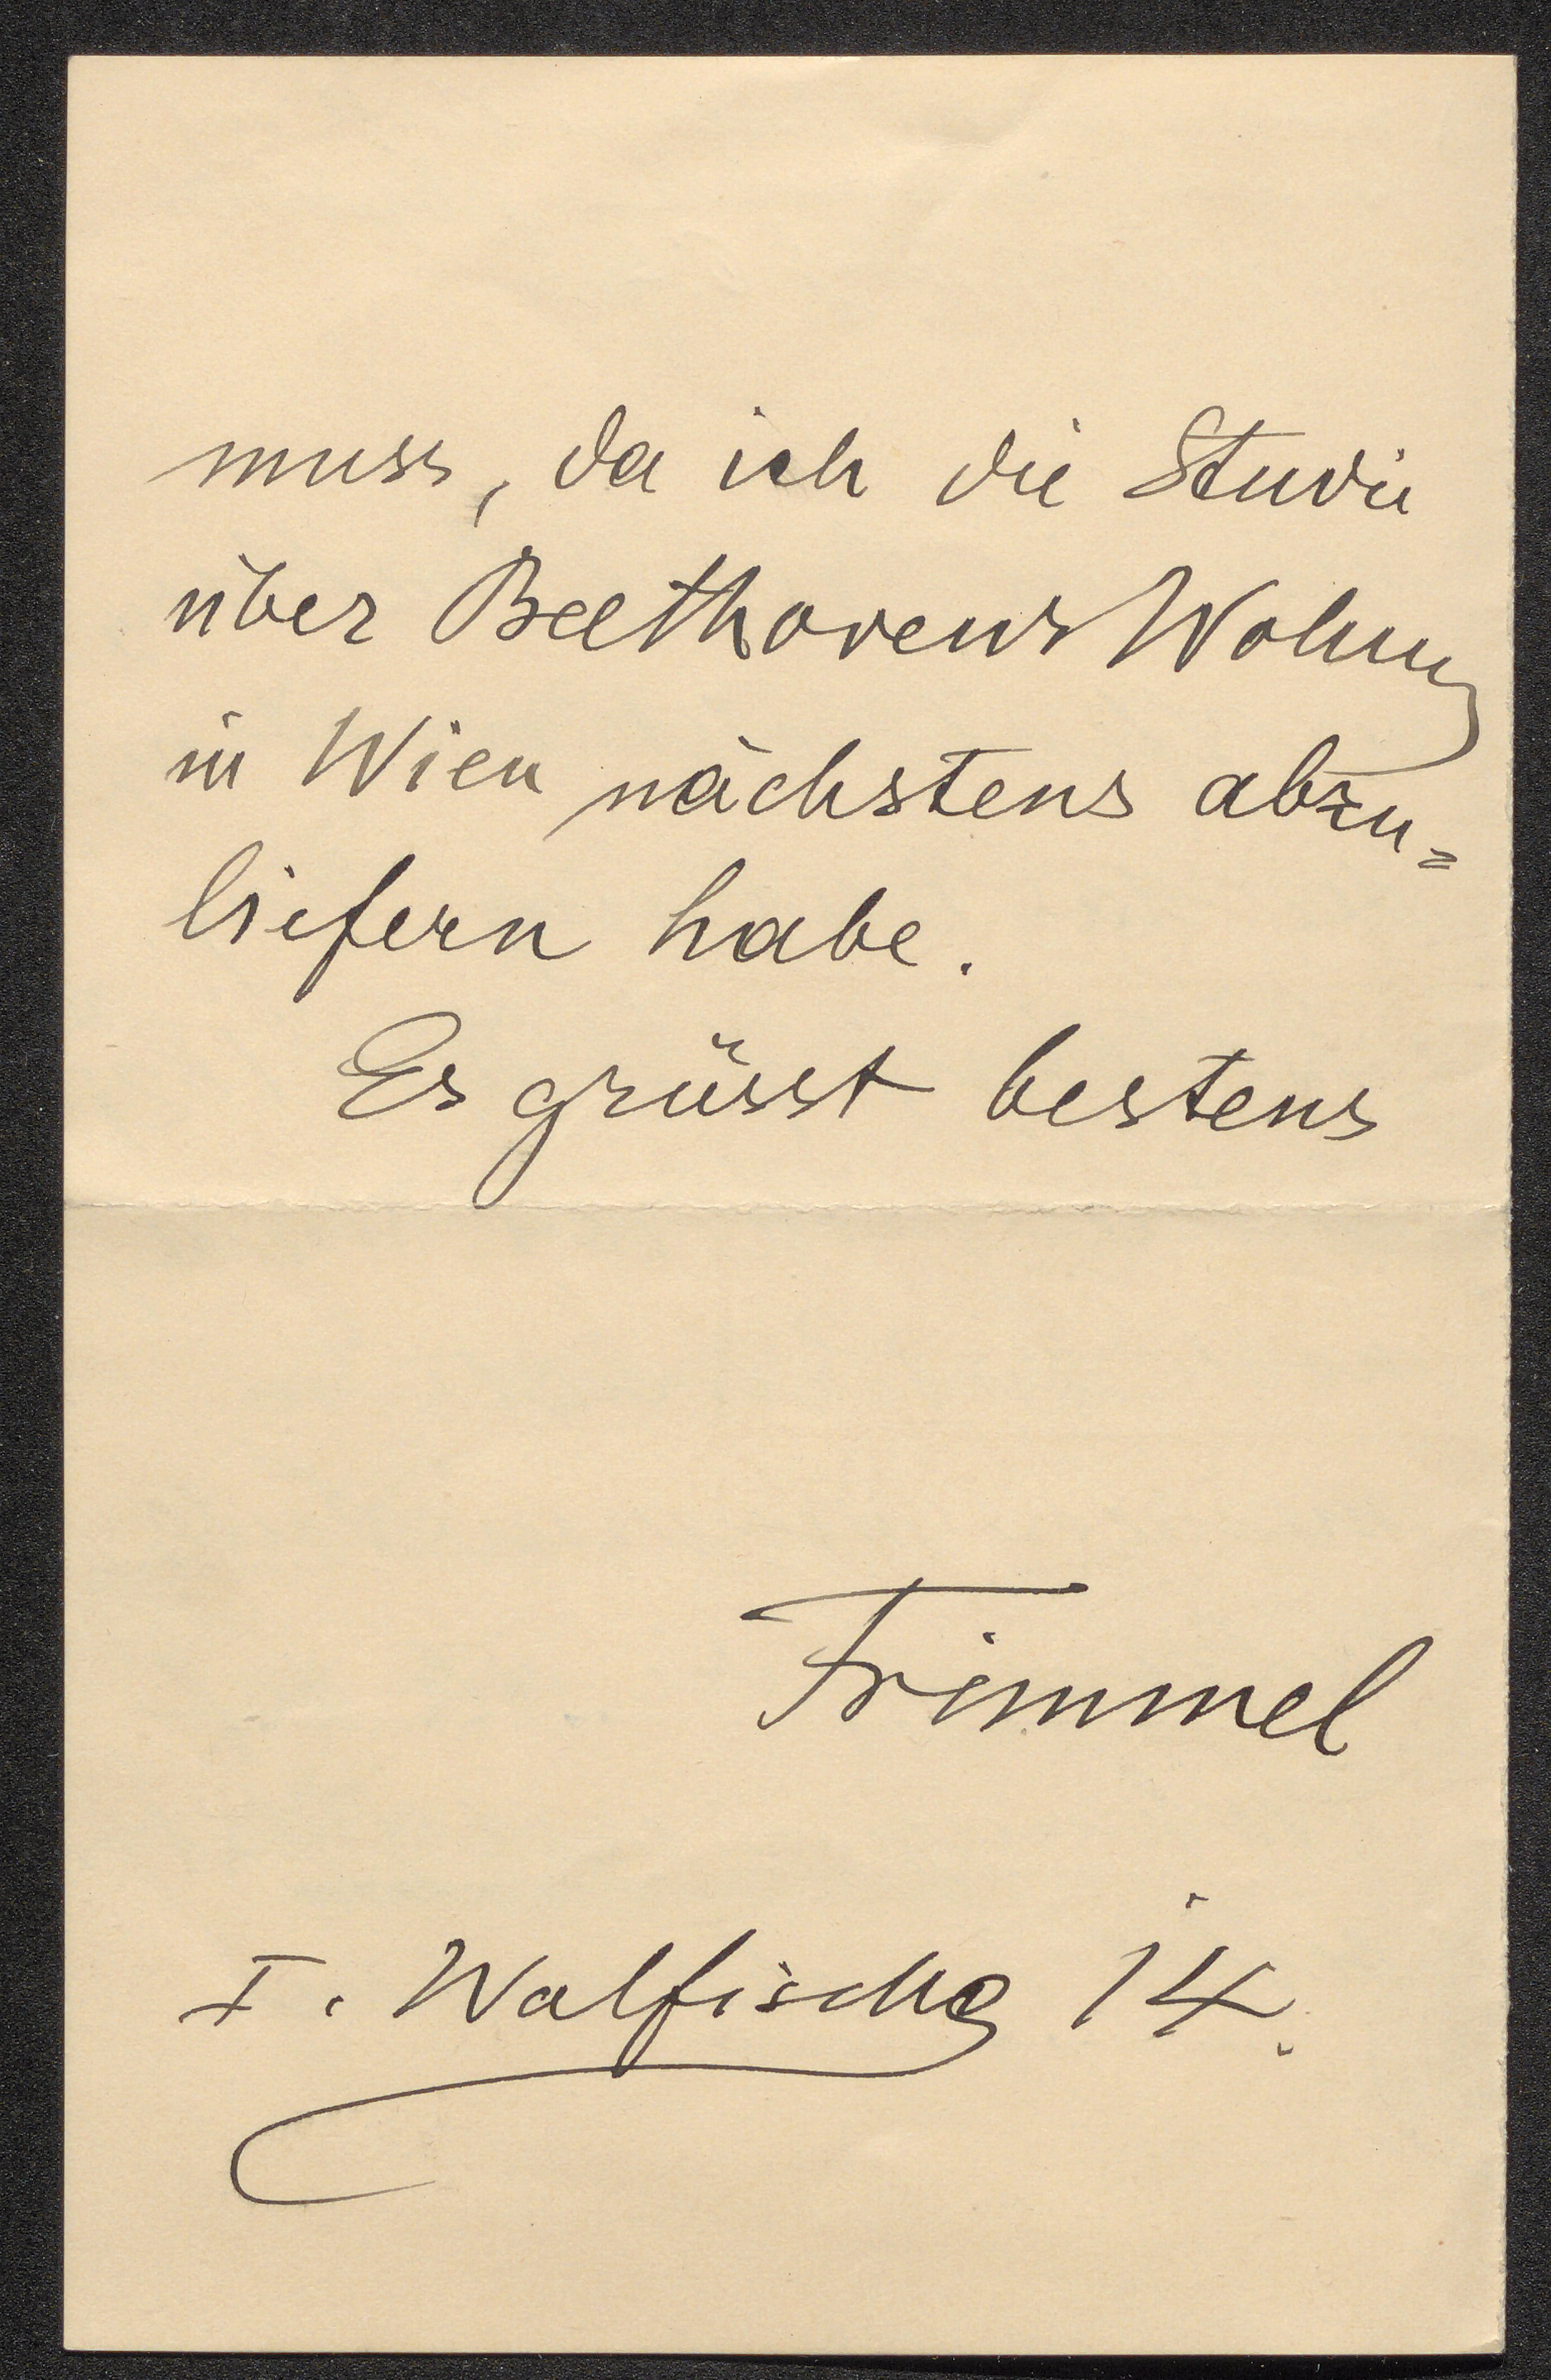 muss, da ich die Studie
über Beethovens Wohnung
in Wien nächstens abzu=
liefern habe.
Es grüsst bestens
Frimmel
I. Walfischg 14.